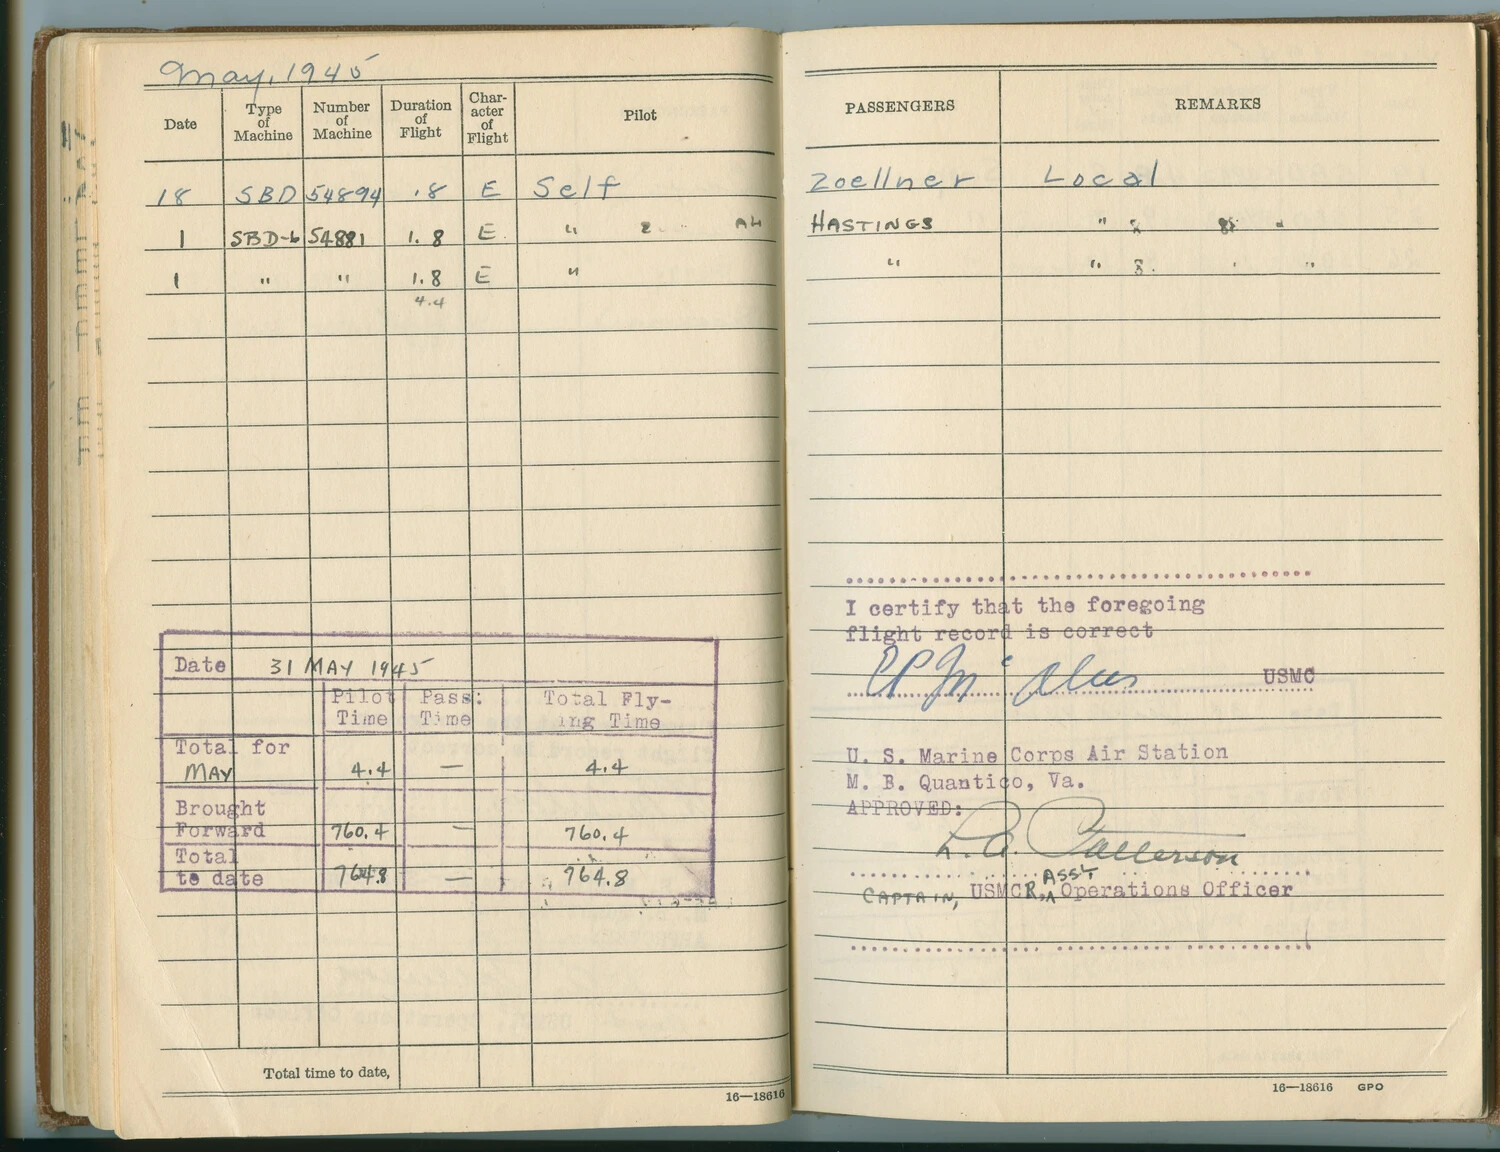 May, 1945
Date Type of Machine Number of Machine Duration of Flight Char- acter of Flight Pilot
18 SBD 54894 .8 E Self
1 SBD-6 54881 1.8 E "
1 " " 1.8 E "
4.4
Date 31 MAY 1945
Pilot Time Pass: Time Total Fly- ing Time
Total for MAY 4.4 — 4.4
Brought Forward 760.4 — 760.4
Total to date 764.8 — 764.8
Total time to date,
16—18616
PASSENGERS REMARKS
Zoellner Local
HASTINGS "
" "
I certify that the foregoing
flight record is correct
USMC
U. S. Marine Corps Air Station
M. B. Quantico, Va.
APPROVED:
L. A. Patterson
ASST
CAPTAIN, USMCR, Operations Officer
16—18616 GPO